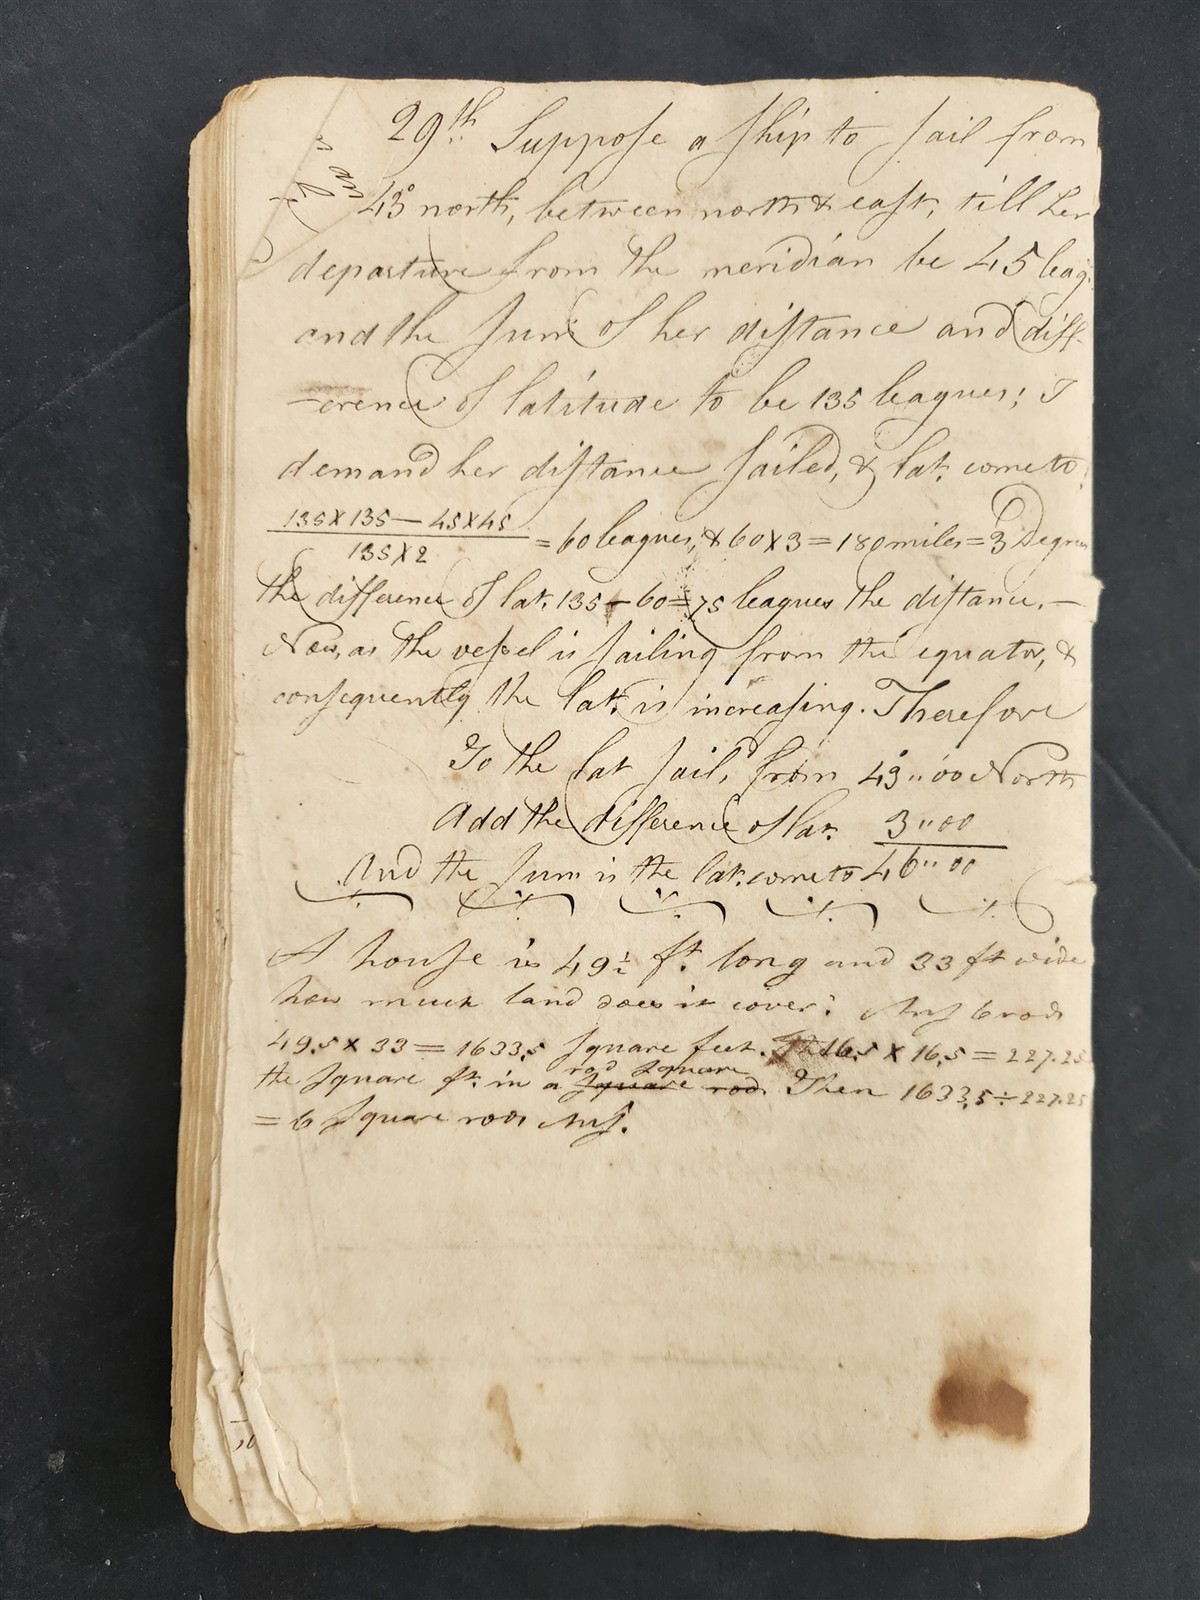 29th Suppose a ship to sail from
43° north, between north & east, till her
departure from the meridian be 45 leag.
and the sum of her distance and diff-
-erence of latitude to be 135 leagues; I
demand her distance sailed, & lat. come to.
135 x 135 — 45 x 45
135 x 2
= 60 leagues, & 60 x 3 = 180 miles = 3 Degrees
the difference of lat. 135 - 60 = 75 leagues the distance. —
Now, as the vessel is sailing from the equator, &
consequently the lat. is increasing. Therefore
To the lat sail'd from 43°,,00 North
Add the difference of lat. 3,,00
And the sum is the lat. come to 46,,00
A house is 49½ ft. long and 33 ft wide
how much land does it cover? Ans 6 rods
49,5 x 33 = 1633,5 square feet. 16,5 x 16,5 = 227.25
rod square
the square ft. in a square rod. Then 1633,5 ÷ 227.25
= 6 square rods Ans.